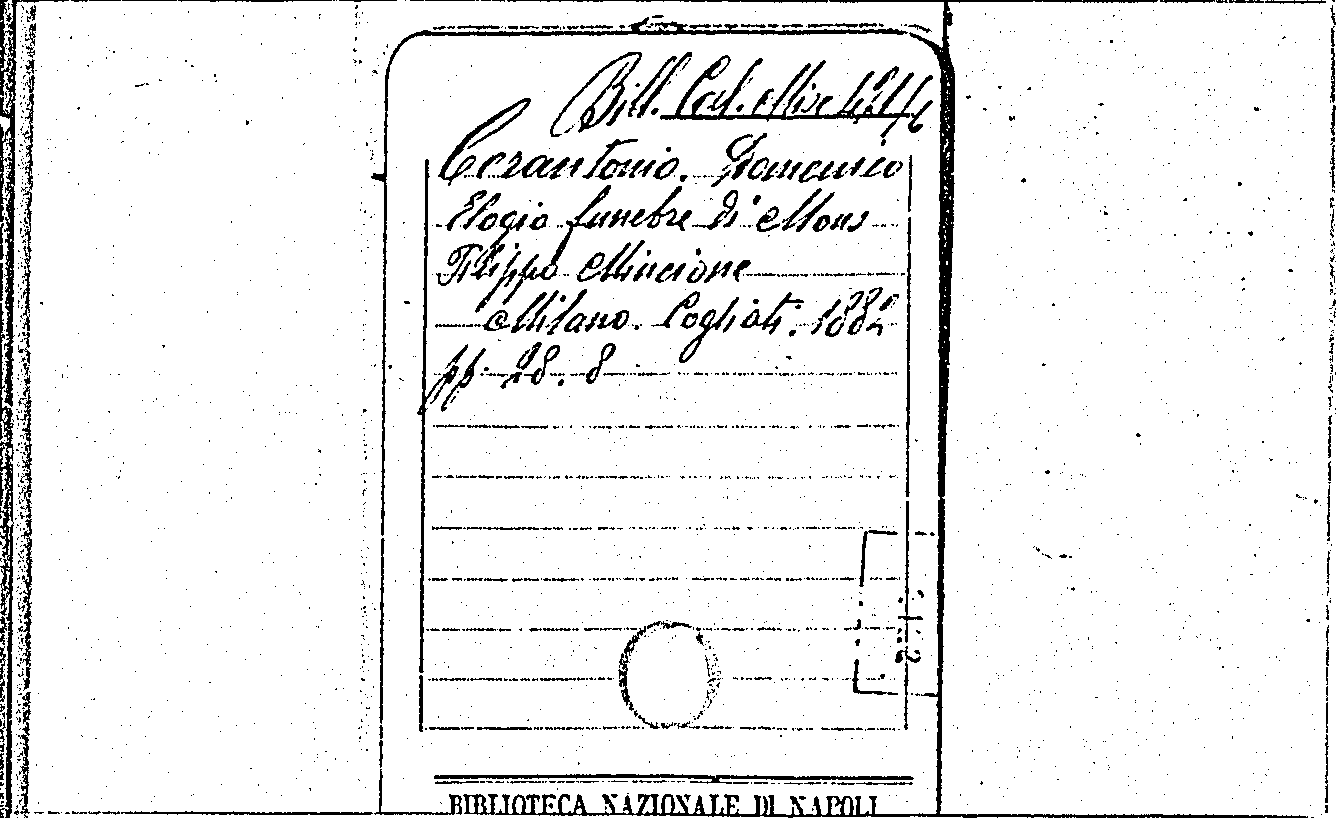 Bill. Cal. Misc
Cerantonio. Domenico
Elogio funebre di Mons
Filippo Mincione
Milano. Cogliati. 1882
pp. 28. 8
BIBLIOTECA NAZIONALE DI NAPOLI